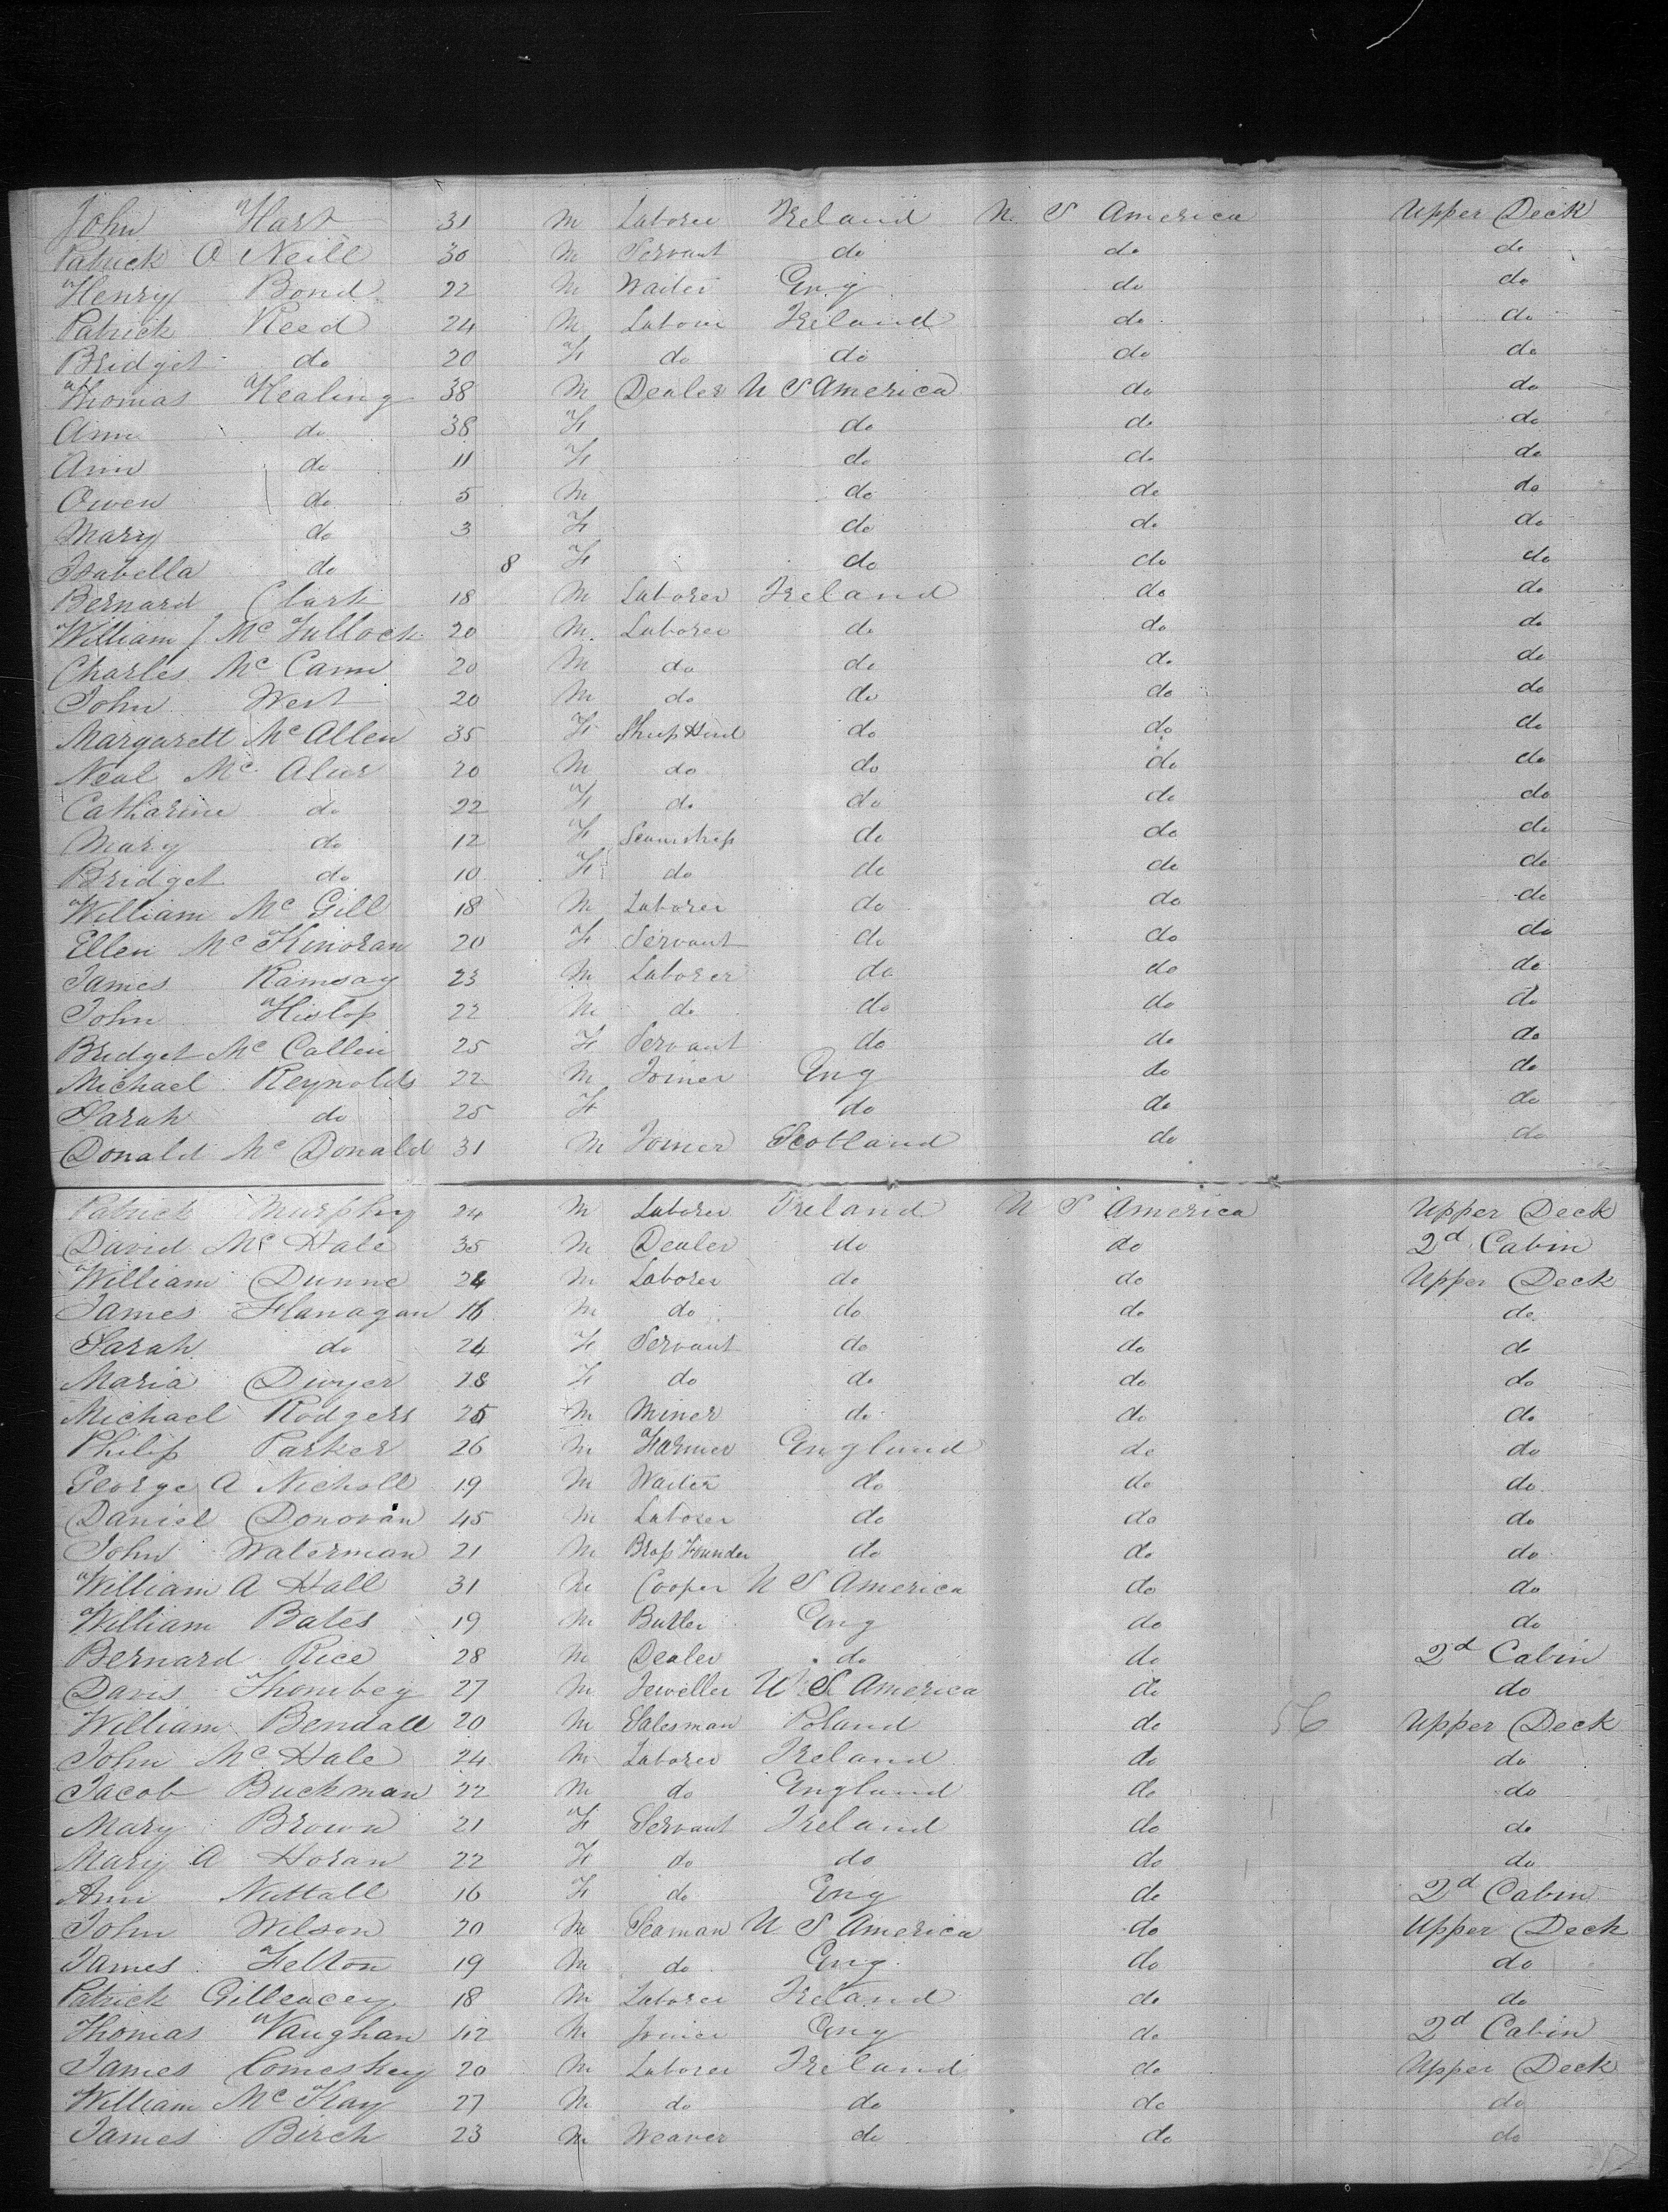 John Hart 31 M Laborer Ireland U S America Upper Deck
Patrick O Neill 30 M Servant do do do
Henry Bond 22 M Waiter Eng do do
Patrick Reed 24 M Labour Ireland do do
Bridget do 20 F do do do do
Thomas Healing 38 M Dealer U S America do do
Ann do 38 F do do do
Ann do 11 F do do do
Owen do 5 M do do do
Mary do 3 F do do do
Isabella do 8 F do do do
Bernard Clark 18 M Laborer Ireland do do
William J Mc Tullock 20 M Laborer do do do
Charles Mc Cann 20 M do do do do
John West 20 M do do do do
Margarett Mc Allen 35 F do do do
Neal Mc 20 M do do do do
Catharine do 22 F do do do do
Mary do 12 F do do do
Bridget do 10 F do do do do
William Mc Gill 18 M Laborer do do do
Ellen Mc Kinoran 20 F Servant do do do
James Ramsay 23 M Laborer do do do
John Hislop 22 M do do do do
Bridget Mc Callen 25 F Servant do do do
Michael Reynolds 22 M Joiner Eng do do
Sarah do 25 F do do do
Donald Mc Donald 31 M Joiner Scotland do do
Patrick Murphy 24 M Laborer Ireland U S America Upper Deck
David Mc Hale 35 M Dealer do do 2d Cabin
William Dunne 24 M Laborer do do Upper Deck
James Flanagan 16 M do do do do
Sarah do 24 F Servant do do do
Maria Dwyer 28 F do do do do
Michael Rodgers 25 M Miner do do do
Philip Parker 26 M Farmer England do do
George A Nicholl 19 M Waiter do do do
Daniel Donovan 45 M Laborer do do do
John Waterman 21 M Brass Founder do do do
William A Hall 31 M Cooper U S America do do
William Bates 19 M Butler Eng do do
Bernard Rice 28 M Dealer do do 2d Cabin
Davis Thombey 27 M Jeweller U S America do do
William Bendall 20 M Salesman Poland do 56 Upper Deck
John Mc Hale 24 M Laborer Ireland do do
Jacob Buckman 22 M do England do do
Mary Brown 21 F Servant Ireland do do
Mary A Horan 22 F do do do do
Ann Nuttall 16 F do Eng do 2d Cabin
John Wilson 20 M Seaman U S America do Upper Deck
James Felton 19 M do Eng do do
Patrick Gilleacey 18 M Laborer Ireland do do
Thomas Vaughan 42 M Joiner Eng do 2d Cabin
James Comeskey 20 M Laborer Ireland do Upper Deck
William Mc Kay 27 M do do do do
James Birch 23 M Weaver do do do